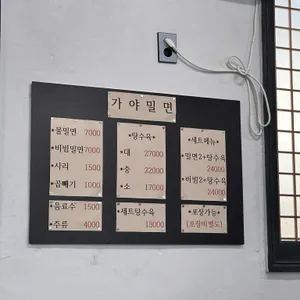 가야밀면
•물밀면 7000
•비빔밀면7000
•사리 1500
•곱빼기 1000
•음료수 1500
•주류 4000
•탕수육•
•대 27000
•중 22000
•소 17000
세트탕수육
13000
•세트메뉴•
밀면2+탕수육
24000
비빔2+탕수육
24000
•포장가능•
(포장비별도)